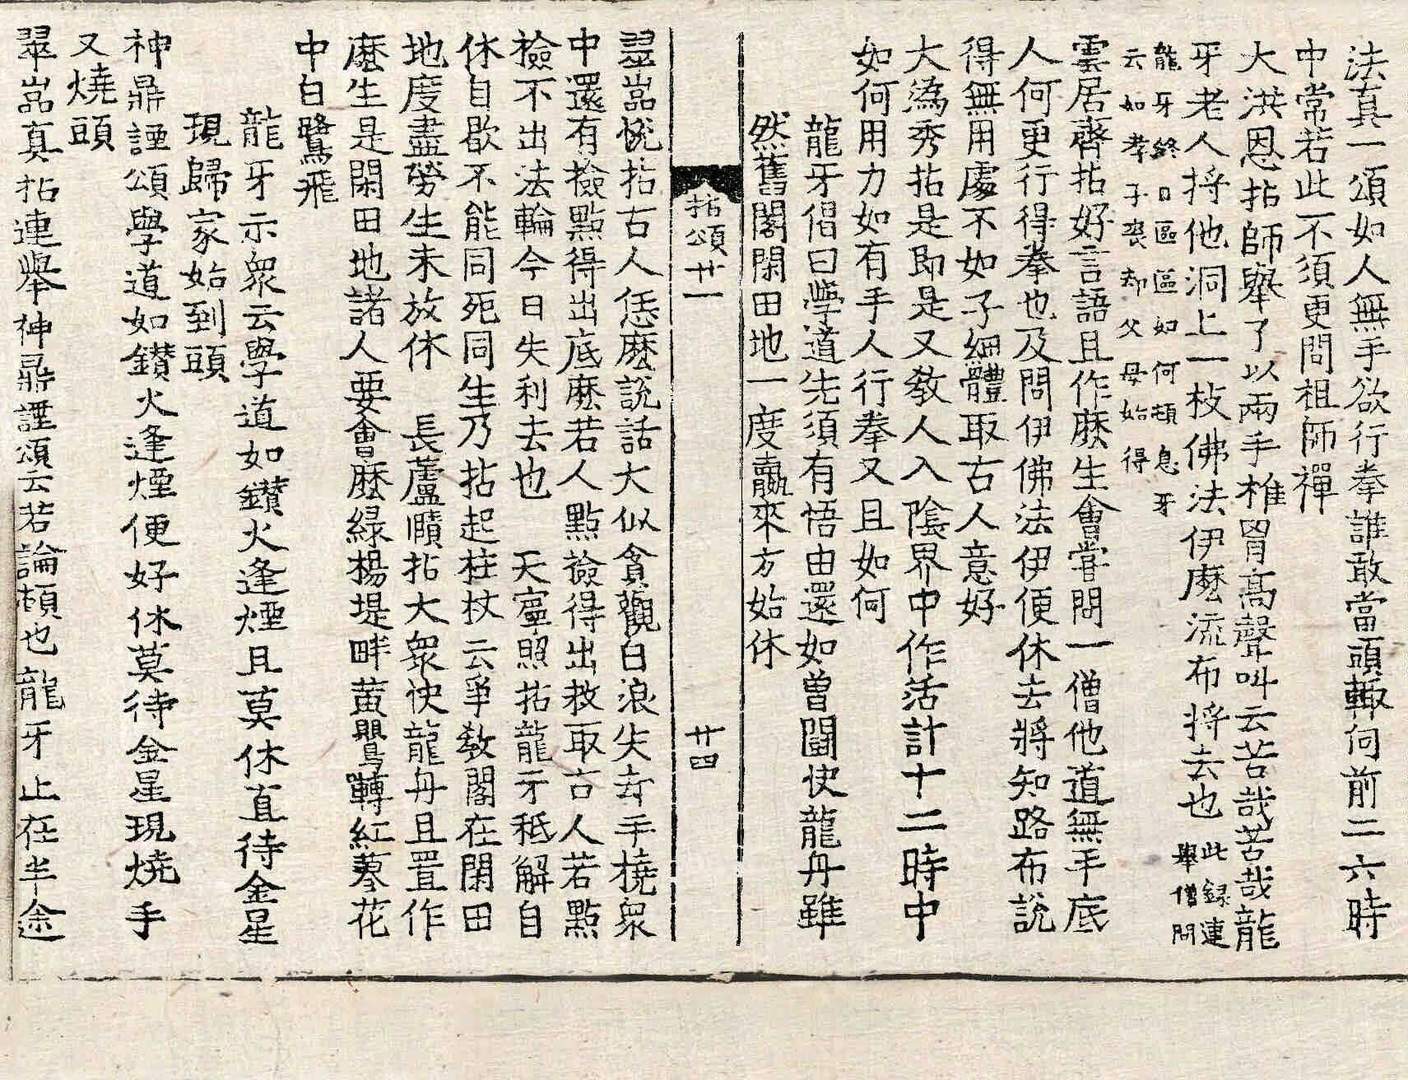 法真一頌如人無手欲行拳誰敢當頭輙向前二六時
中常若此不須更問祖師禪
大洪恩拈師舉了以兩手椎胷高聲叫云苦哉苦哉龍
牙老人將他洞上一枝佛法伊麽流布將去也此録連
舉僧問
龍牙終日區區如何頓息牙
云如孝子喪却父母始得
雲居齊拈好言語且作麽生會甞問一僧他道無手底
人何更行得拳也及問伊佛法伊便休去將知路布說
得無用處不如子細體取古人意好
大潙秀拈是即是又敎人入陰界中作活計十二時中
如何用力如有手人行拳又且如何
龍牙偈曰學道先須有悟由還如曾鬪快龍舟雖
然舊閣閑田地一度贏來方始休
拈頌廿一
廿四
翠嵓悅拈古人恁麽說話大似貪觀白浪失却手橈衆
中還有撿點得出底麽若人點撿得出救取古人若點
撿不出法輪今日失利去也 天寧照拈龍牙秪解自
休自歇不能同死同生乃拈起柱杖云爭敎閣在閑田
地度盡勞生未放休 長蘆賾拈大衆快龍舟且置作
麽生是閑田地諸人要會麽綠楊堤畔黃鸎囀紅蓼花
中白鷺飛
龍牙示衆云學道如鑽火逢煙且莫休直待金星
現歸家始到頭
神鼎諲頌學道如鑽火逢煙便好休莫待金星現燒手
又燒頭
翠嵓真拈連舉神鼎諲頌云若論頓也龍牙止在半途